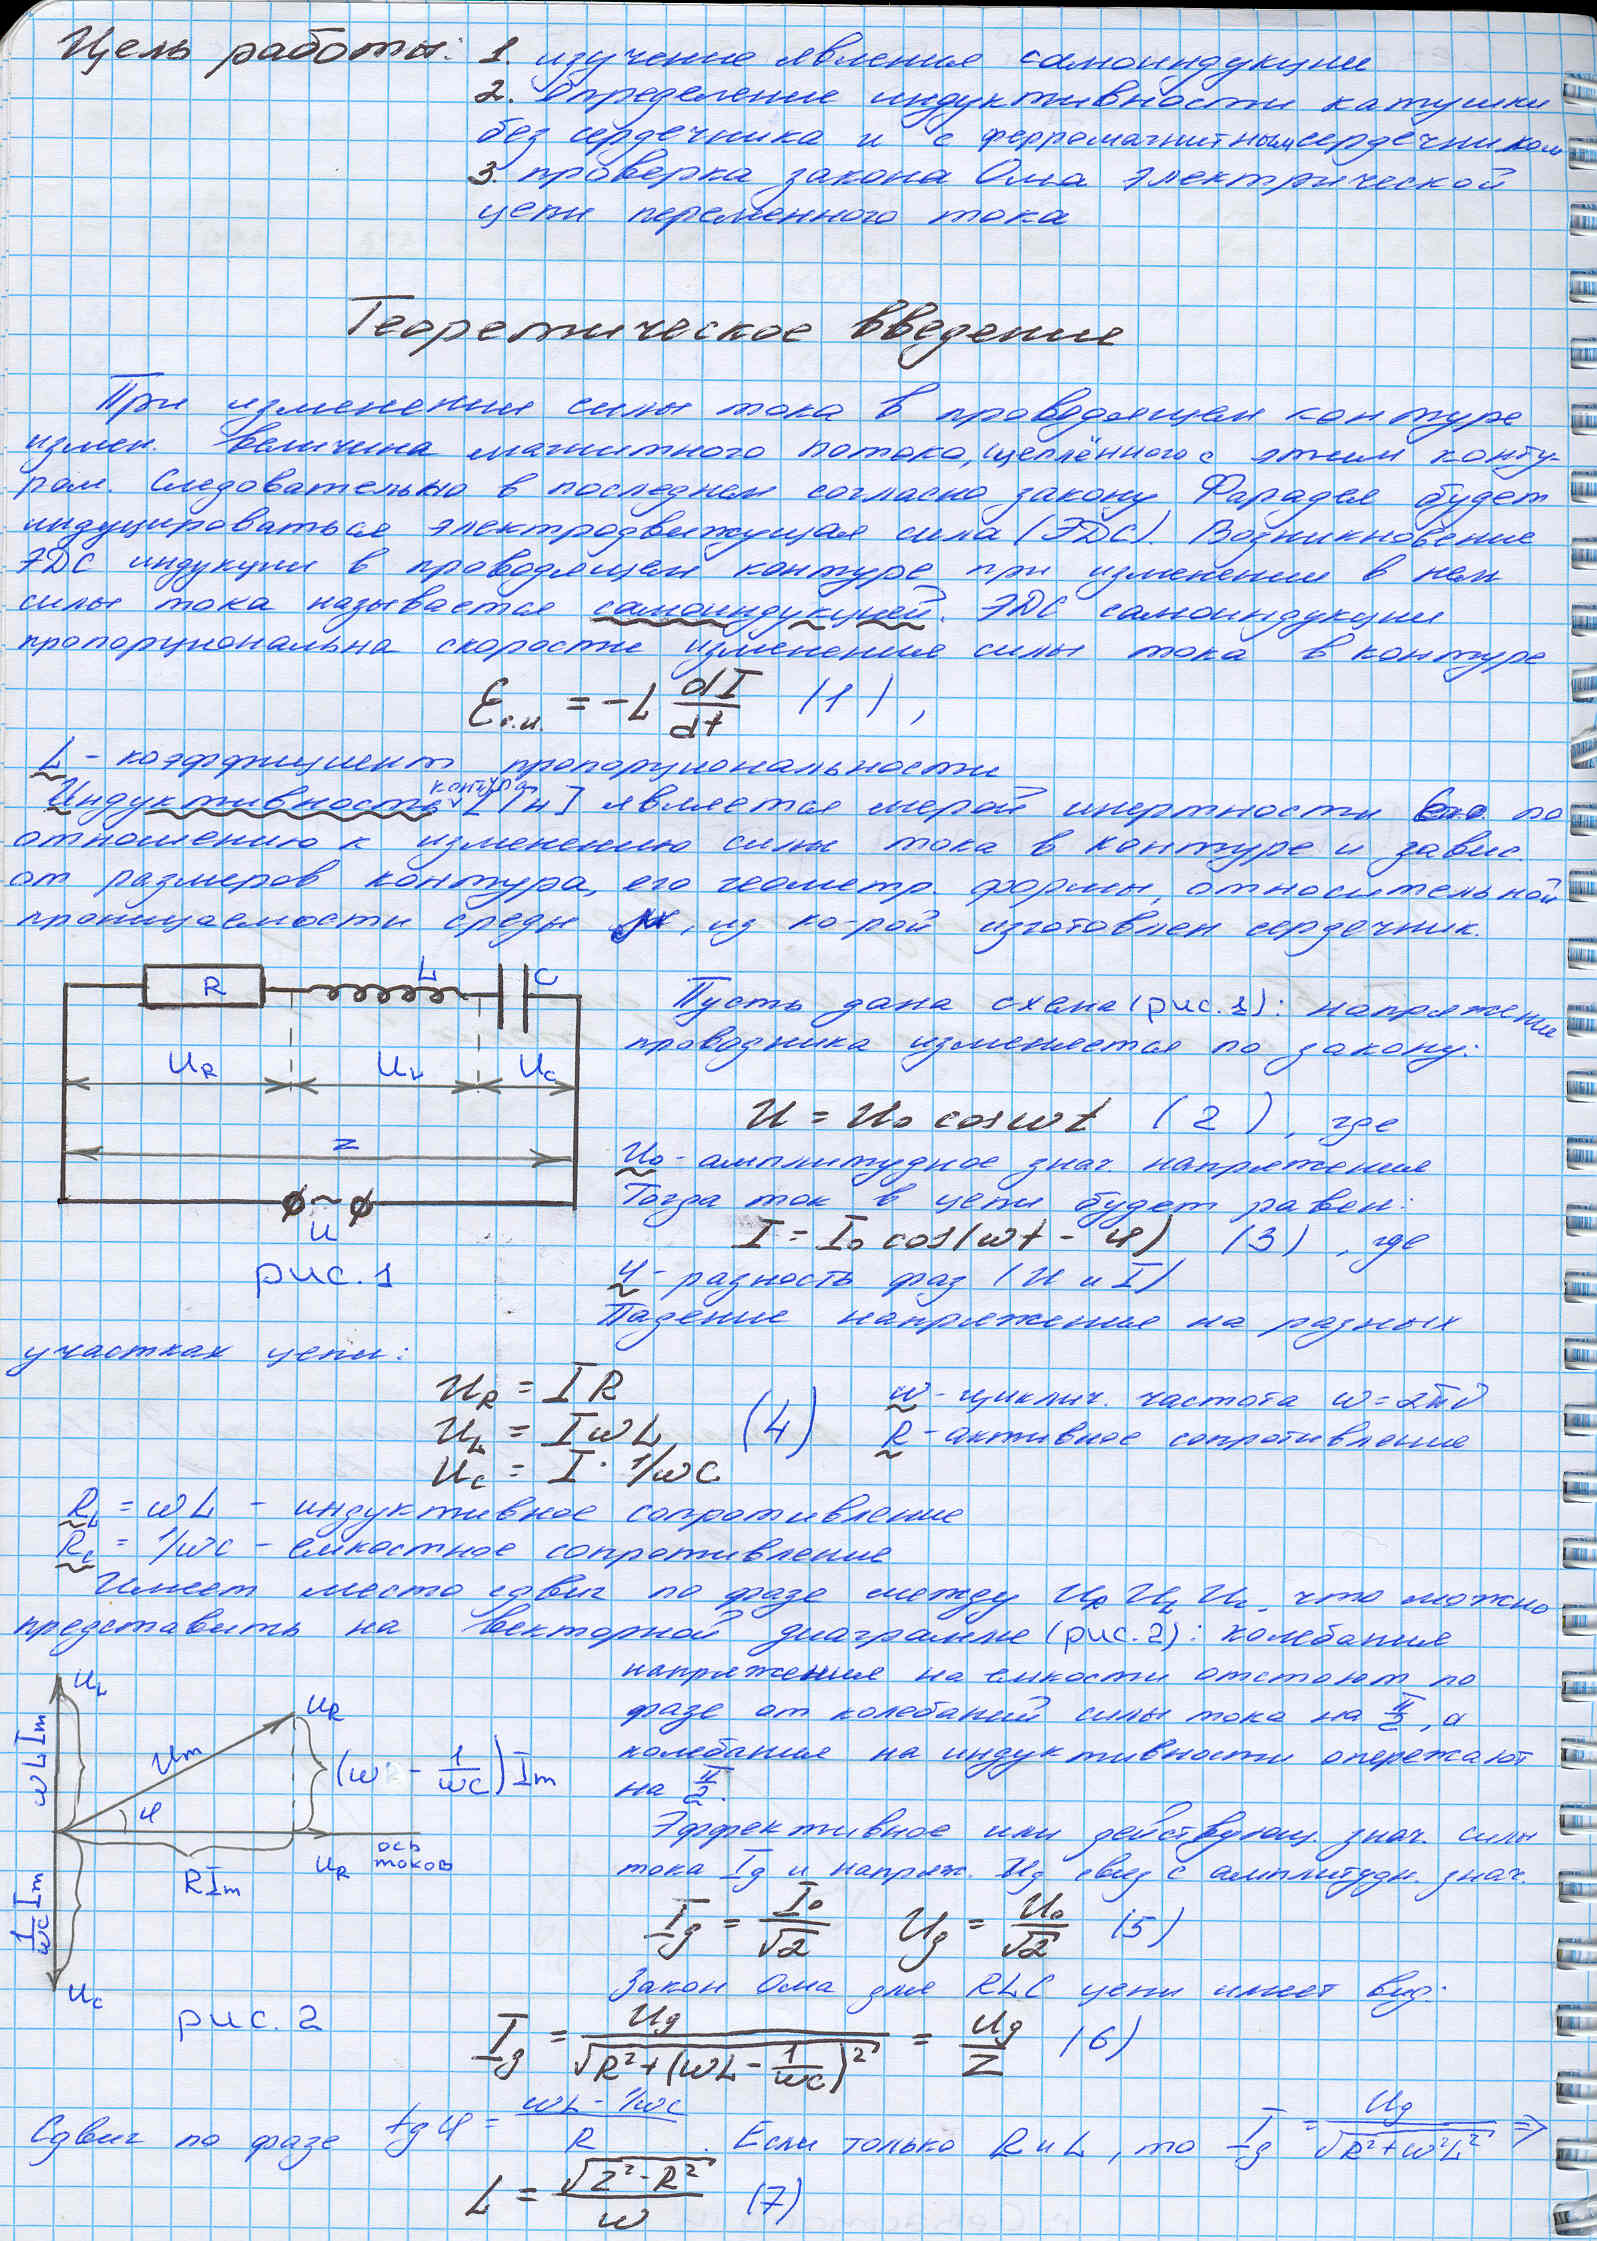 Цель работы: 1. изучение явления самоиндукции
2. Определение индуктивности катушки
без сердечника и с ферромагнитным сердечником
3. проверка закона Ома электрической
цепи переменного тока
Теоретическое введение
При изменении силы тока в проводящем контуре
измен. величина магнитного потока, сцеплённого с этим конту-
ром. Следовательно в последнем согласно закону Фарадея будет
индуцироваться электродвижущая сила (ЭДС). Возникновение
ЭДС индукции в проводящем контуре при изменении в нем
силы тока называется самоиндукцией. ЭДС самоиндукции
пропорциональна скорости изменения силы тока в контуре
Ɛс.и. = -L dI/dt (1),
L - коэффициент пропорциональности
Индуктивность контура L [Гн] является мерой инертности его по
отношению к изменению силы тока в контуре и завис.
от размеров контура, его геометр. формы, относительной
проницаемости среды μ, из ко-рой изготовлен сердечник.
R L C
U_R U_L U_C
Z
~
U
рис. 1
Пусть дана схема (рис. 1): напряжение
проводника изменяется по закону:
U = U₀ cos ωt (2), где
U₀ - амплитудное знач. напряжения
Тогда ток в цепи будет равен:
I = I₀ cos(ωt - φ) (3), где
φ - разность фаз (U и I)
Падение напряжения на разных
участках цепи:
U_R = I R
U_L = I ωL (4)
U_C = I · 1/ωC
ω - циклич. частота ω = 2πν
R - активное сопротивление
R_L = ωL - индуктивное сопротивление
R_C = 1/ωC - емкостное сопротивление
Имеет место сдвиг по фазе между U_R U_L U_C, что можно
представить на векторной диаграмме (рис. 2): колебания
напряжения на емкости отстают по
фазе от колебаний силы тока на π/2, а
колебания на индуктивности опережают
на π/2.
U_L
U_R
ωL Im
Um
(ω - 1/ωC) Im
φ
ось токов
U_R
R Im
1/ωC Im
U_C
рис. 2
Эффективное или действующ. знач. силы
тока I_g и напряж. U_g связ с амплитудн. знач.
I_g = I₀/√2 U_g = U₀/√2 (5)
Закон Ома для RLC цепи имеет вид:
I_g = U_g/√(R² + (ωL - 1/ωC)²) = U_g/Z (6)
Сдвиг по фазе tg φ = (ωL - 1/ωC)/R. Если только R и L, то I_g = U_g/√(R² + ω²L²) ⇒
L = √(Z² - R²)/ω (7)